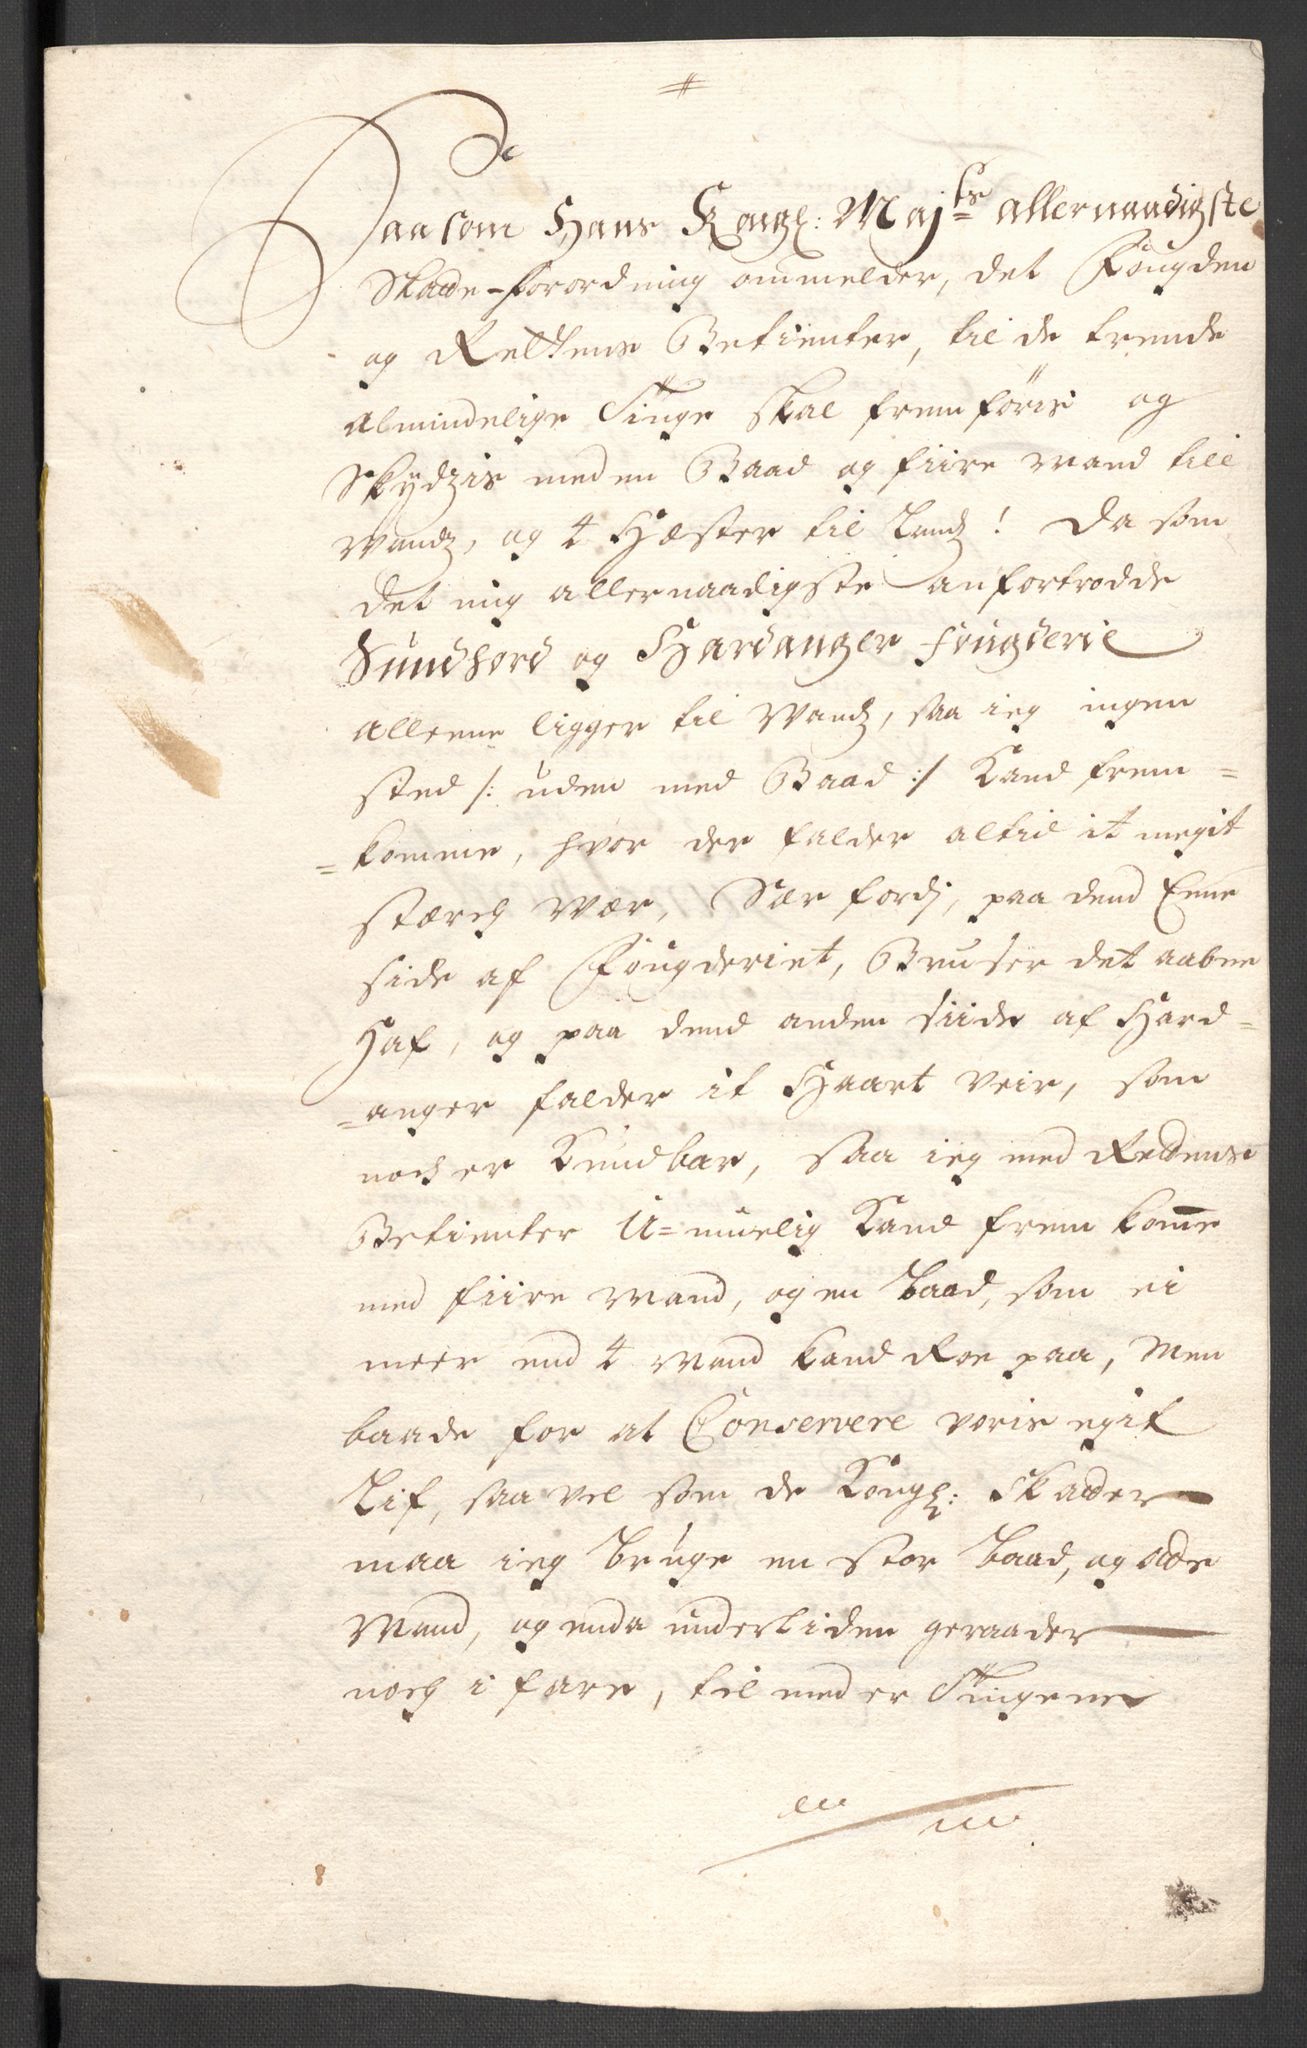 Saasom Hans Kongl: Maj:ts allernaadigste
Skatte-forordning ommelder, det Fougden
og Rettens Betienter, til de trende
almindelige Tinge skal fremføris og
Skydzis med en Baad og fiire Mand till
Vandz, og 4 Hæster til Landz! Da som
det mig allernaadigste anfortrodde
Sundhord og Hardanger Fougderie
alleene ligger til Vandz, saa ieg ingen
sted /: uden med Baad :/ Kand frem=
=komme, hvor der falder altid it megit
stærch Vær, Sær fordj, paa dend Eene
side af Fougderiet, Bruser det aabne
Haf, og paa dend anden Siide af Hard=
=anger falder it Haart Veir, som
noch er Kundbar, saa ieg med Rettens
Betienter U=muelig Kand frem komme
med fiire Mand, og en Baad, som ei
meer end 4 Mand kand Roe paa, Men
baade for at Conservere voris egit
Lif, saa vel som de Kongl: Skatter
maa ieg bruge en stor Baad, og otte
Mand, og enda undertiden geraader
noch i fare, til med er Tingene